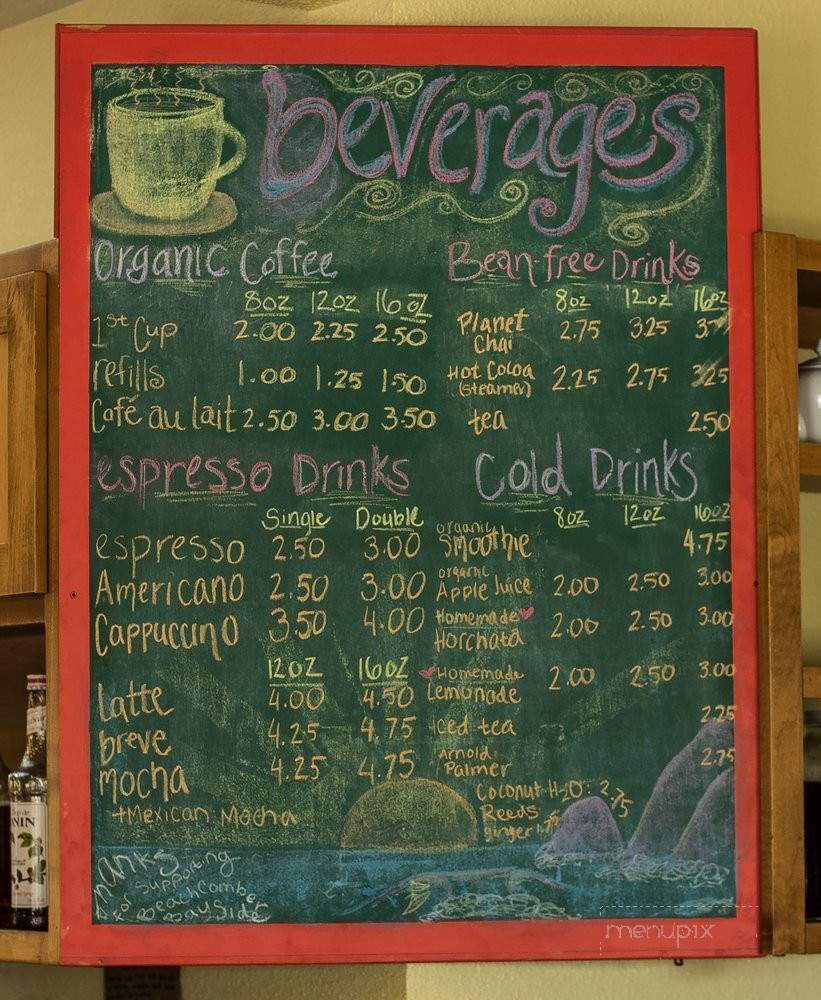 beverages
Organic Coffee
8oz 12oz 16oz
1st Cup 2.00 2.25 2.50
refills 1.00 1.25 1.50
Café au lait 2.50 3.00 3.50
Bean-free Drinks
8oz 12oz 16oz
Planet
Chai 2.75 3.25
Hot Cocoa
(steamer) 2.25 2.75 3.25
tea 2.50
espresso Drinks
Single Double
espresso 2.50 3.00
Americano 2.50 3.00
Cappuccino 3.50 4.00
12oz 16oz
Latte 4.00 4.50
breve 4.25 4.75
mocha 4.25 4.75
+Mexican Mocha
Cold Drinks
8oz 12oz 16oz
organic
Smoothie 4.75
organic
Apple Juice 2.00 2.50 3.00
Homemade
Horchata 2.00 2.50 3.00
Homemade
Lemonade 2.00 2.50 3.00
Iced tea 2.25
Arnold
Palmer 2.75
Coconut H2O: 2.75
Reeds
ginger
Thanks
for supporting
Beachcomber
Bayside
NIN
menupix